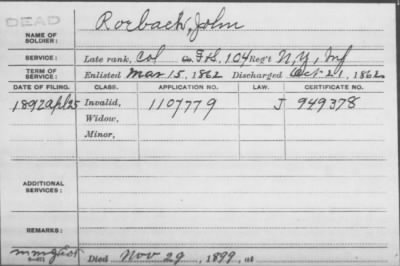 DEAD
Rorbach, John
NAME OF SOLDIER:
SERVICE: Late rank, Col F.&S., 104 Reg't N.Y. Inf
TERM OF SERVICE: Enlisted Mar 15, 1862 Discharged Oct 21, 1862
DATE OF FILING. CLASS. APPLICATION NO. LAW. CERTIFICATE NO.
1892 Apl 25 Invalid, 1107779 J 949378
Widow,
Minor,
ADDITIONAL SERVICES:
REMARKS:
Died Nov 29, 1899, at